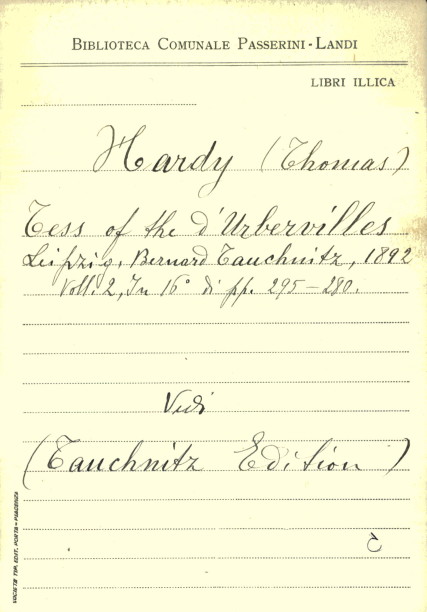 BIBLIOTECA COMUNALE PASSERINI-LANDI
LIBRI ILLICA
Hardy (Thomas)
Tess of the d'Urbervilles
Leipzig, Bernard Tauchnitz, 1892
Voll. 2, In 16° di pp. 295-280.
Vedi
(Tauchnitz Edition)
SOCIETÀ TIP. EDIT. PORTA-PIACENZA